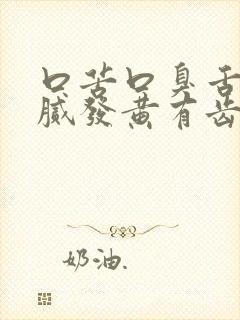 口苦口臭舌
腻發黄有齿
奶油.